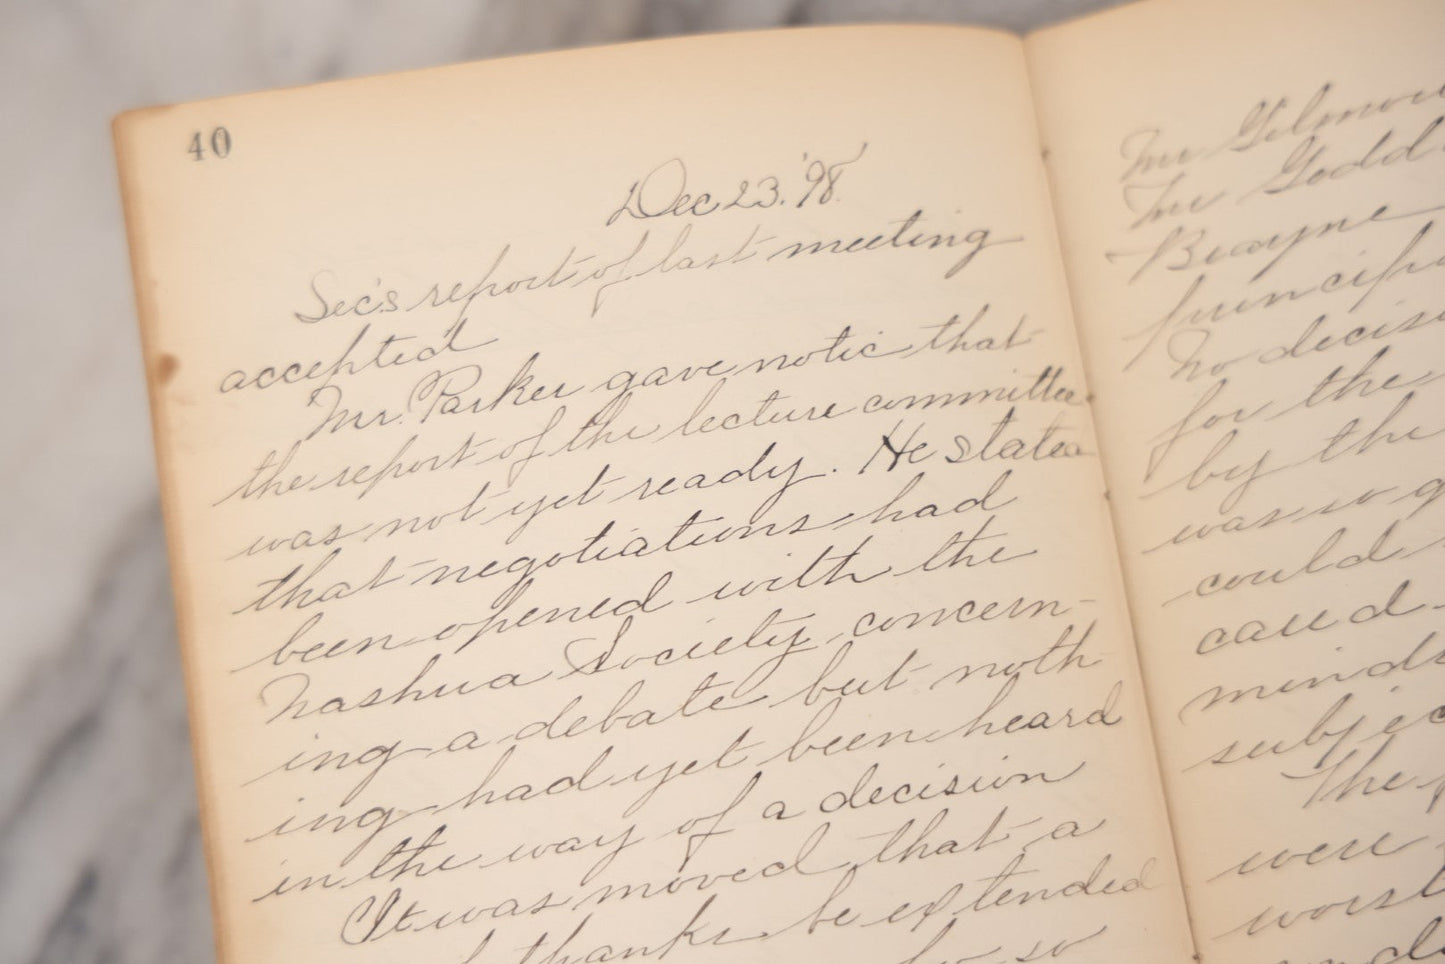 40
Dec 23. '98.
Sec's report of last meeting
accepted
Mr. Parker gave notic that
the report of the lecture committee
was not yet ready. He stated
that negotiations had
been opened with the
Nashua Society concern-
ing a debate but noth
ing had yet been heard
in the way of a decision
It was moved that a
thanks be extended
so
Mr Gilmou
Mr Godd
Brayne
principa
No decisi
for the
by the
was so g
could
caud
minds
subjec
The p
were
worst